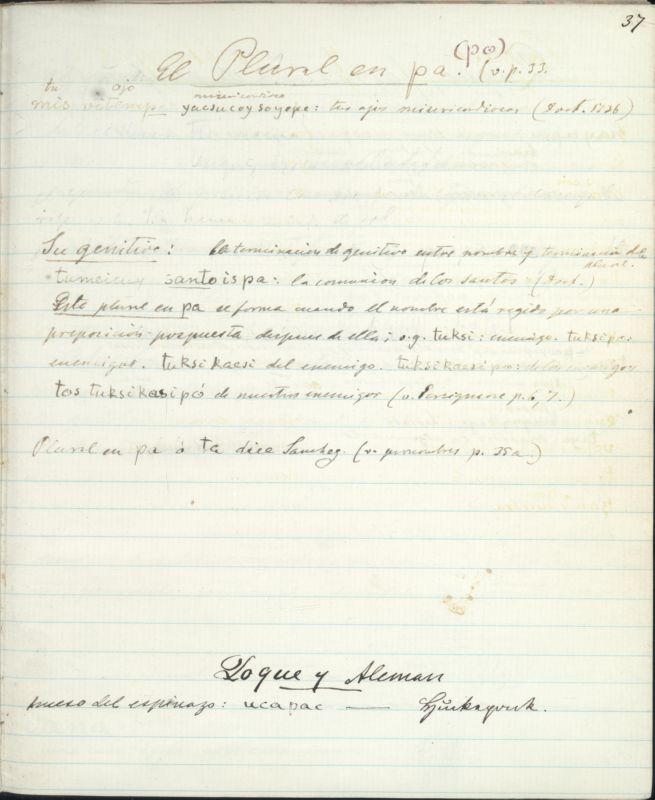 37
El Plural en pa. (pω) (v. p. 33.
tu ojo misericordioso
mis vitempa yacsucoysoyepe: tus ojos misericordiosos (Doct. 1736)
Su genitivo: la terminacion de genitivo entre nombre y terminacion de
plural.
santoispa: la comunion de los santos (Doct.)
Este plural en pa se forma cuando el nombre está regido por una
preposición pospuesta despues de ella; v.g. tuksi: enemigo. tuksipa:
enemigos. tuksikaesi del enemigo. tuksikaesipo: de los enemigos
tos tuksikasipó de nuestros enemigos (v. Persignarse p. 6, 7.)
Plural en pa ó ta dice Sanchez. (v. pronombres p. 35a.)
Zoque y Aleman
hueso del espinazo: ucapac —